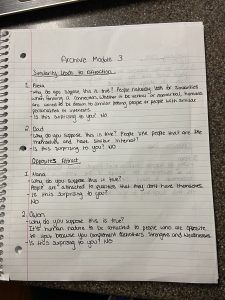 Archive Module 3
Similarity Leads to Attraction
1. Beth
• Why do you suppose this is true? People naturally look for similarities
when forming a connection, whether it be verbal or nonverbal, humans
are wired to be drawn to similar things, people or people with similar
personalities or interests.
• Is this surprising to you? No
2. Dad
• Why do you suppose this is true? People like people that are like
themselves and have similar interest.
• Is this surprising to you? No
Opposites Attract
1. Nana
• Why do you suppose this is true?
People are attached to qualities that they don't have themselves.
• Is this surprising to you?
No
2. Owen
• Why do you suppose this is true?
It's human nature to be attracted to people who are opposite
to you, because you complement each others strengths and weaknesses
• Is this surprising to you? No